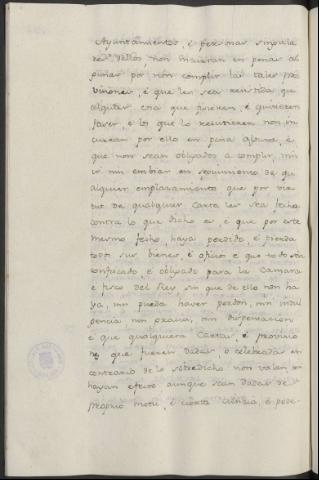 Ayuntamientos, é personas singula
res dellos, non incurran en penas al
gunas por non complir las tales pro
visiones, é que les sea resistida qual
alquier cosa que ficieren, é quisieren
facer, é los que lo resistieren non in
curran por ello en pena alguna, é
que non sean obligados a complir, nin
ir nin embiar en seguimiento de qu
alquier emplazamiento que por vir
tud de qualquier Carta les sea fecho
contra lo que dicho es, é que por este
mesmo fecho, haya perdido é pierda
todos sus bienes, é oficios é que todo sea
confiscado, é obligado para la Camara
é fisco del Rey, sin que de ello non ha
ya, nin pueda haver perdón, nin indul
gencia nin gracia, nin dispensacion
é que qualquiera Cartas, é provisio
nes que fueren dadas, ó celebradas en
contrario de lo sobredicho non valan, nin
hayan efecto aunque sean dadas de
proprio motu, é cierta ciencia, é pode-